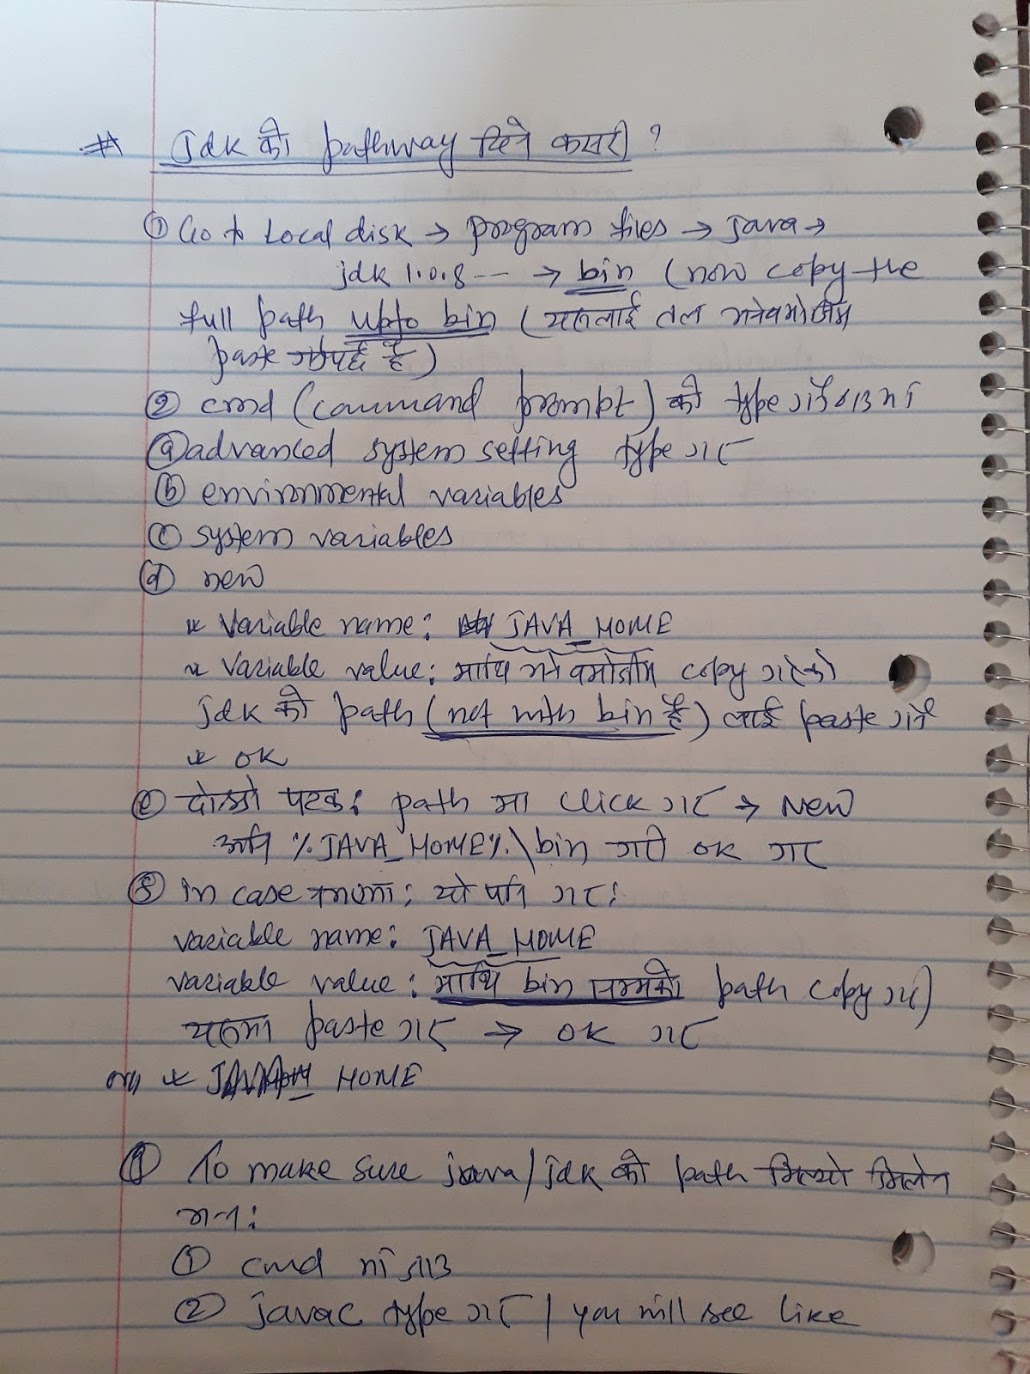 # Jdk को pathway दिने कसरी ?
① Go to Local disk → program files → java →
jdk 1.0.8 -- → bin (now copy the
full path upto bin ( यसलाई तल भनेबमोजिम
paste गर्नुपर्छ है )
② cmd (command prompt) को type गर्ने ठाउँमा
ⓐ advanced system setting type गर
ⓑ environmental variables
ⓒ system variables
ⓓ new
* Variable name: JAVA_HOME
* Variable value: माथि भने बमोजीम copy गरेको
jdk को path (not with bin है) लाई paste गर्ने
* OK
ⓔ दोस्रो पटक: path मा click गर → New
अनि %JAVA_HOME%\bin गरी ok गर
in case नभएमा: यो पनि गर:
variable name: JAVA_HOME
variable value: माथि bin सम्मको path copy गरी
यसमा paste गर → OK गर
* HOME
To make sure java/jdk को path मिल्यो मिलेन
भन्न:
① cmd मा जाउ
② javac type गर / you will see like